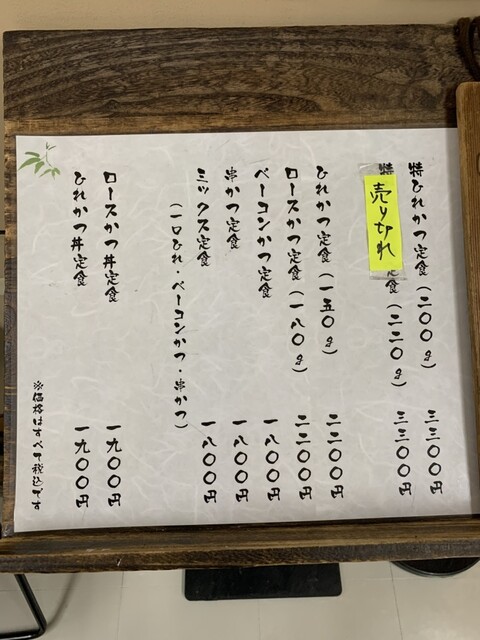 特ひれかつ定食(二〇〇g) 三三〇〇円
特 定食(二二〇g) 三三〇〇円
売り切れ
ひれかつ定食(一五〇g) 二二〇〇円
ロースかつ定食(一八〇g) 二二〇〇円
ベーコンかつ定食 一八〇〇円
串かつ定食 一八〇〇円
ミックス定食 一八〇〇円
(一口ひれ・ベーコンかつ・串かつ)
ロースかつ丼定食 一九〇〇円
ひれかつ丼定食 一九〇〇円
※価格はすべて税込です